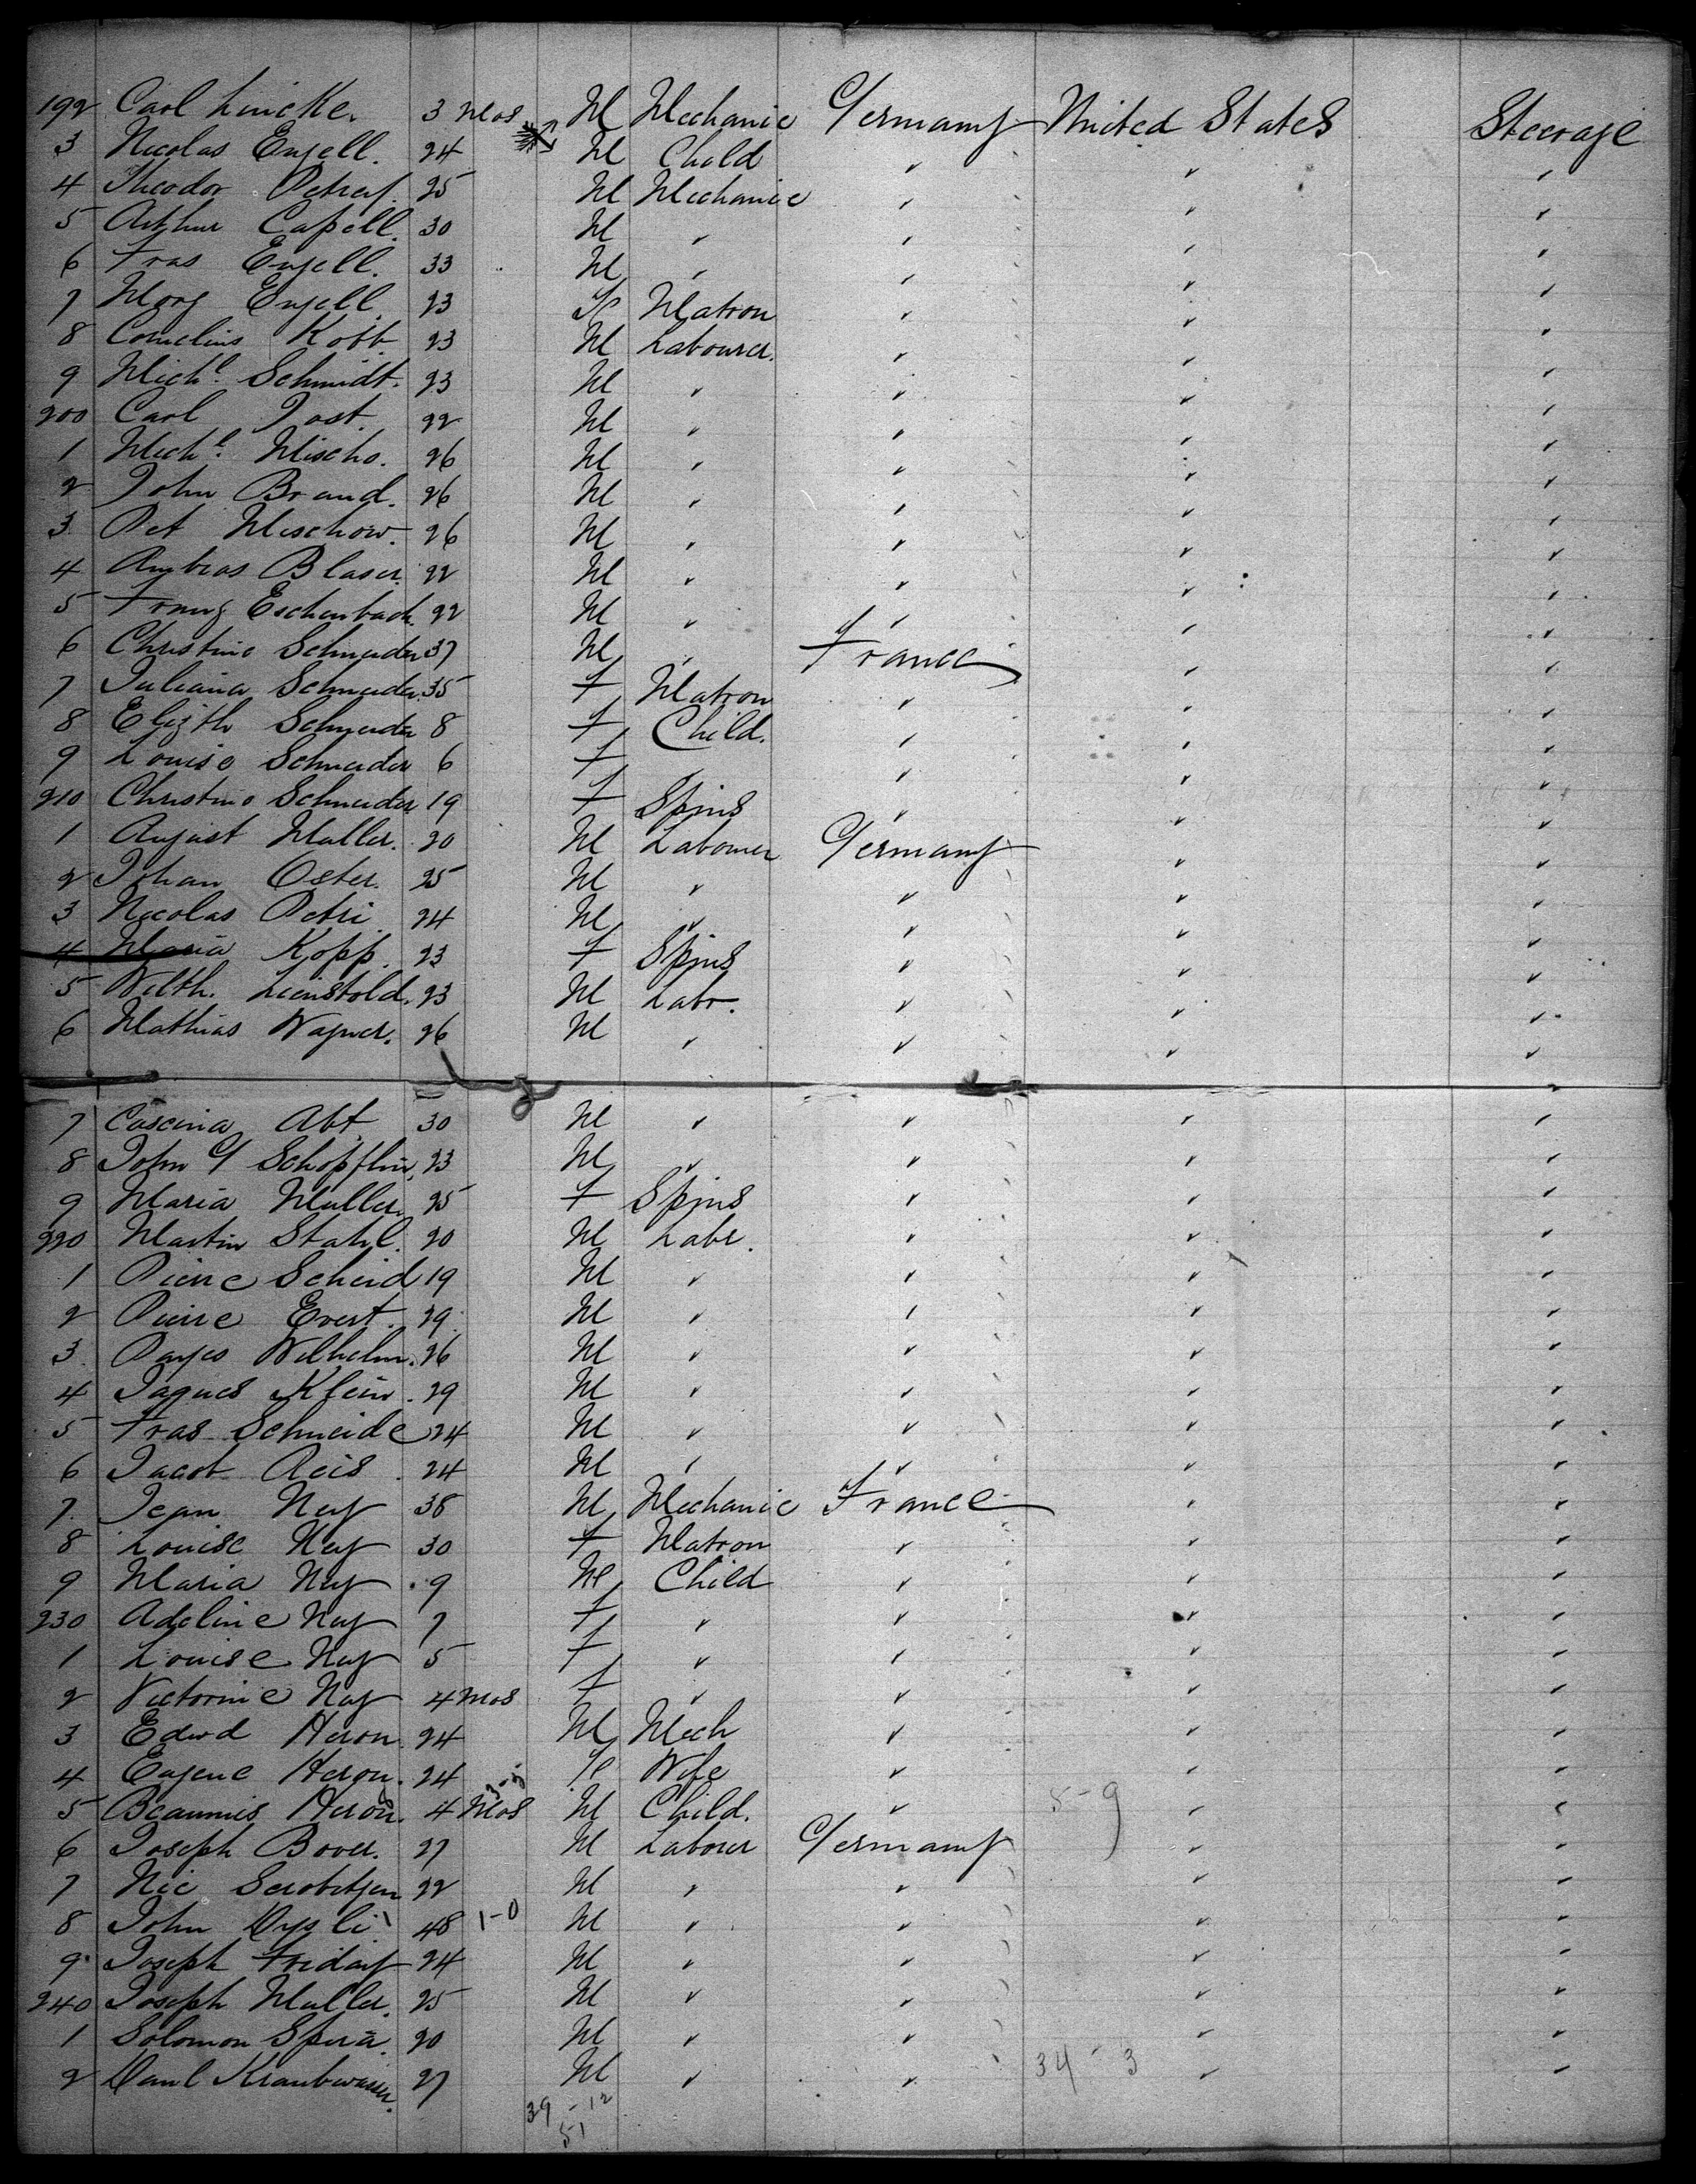 192 Carl Lincke. 3 Mos M Mechanic Germany United States Steerage
3 Nicolas Engell. 24 M Child ✓ ✓ ✓
4 Theodor 25 M Mechanic ✓ ✓ ✓
5 Arthur Capell. 30 M ✓ ✓ ✓ ✓
6 Fras Engell. 33 M ✓ ✓ ✓ ✓
7 Marg Engell 23 F Matron ✓ ✓ ✓
8 Cornelius Kobb 23 M Labourer. ✓ ✓ ✓
9 Michl. Schmidt. 23 M ✓ ✓ ✓ ✓
200 Carl Jost. 22 M ✓ ✓ ✓ ✓
1 Michl. Mischo. 26 M ✓ ✓ ✓ ✓
2 John Brand. 26 M ✓ ✓ ✓ ✓
3 Pet Mischow. 26 M ✓ ✓ ✓ ✓
4 Ambros Blaser. 22 M ✓ ✓ ✓ ✓
5 Eschenbach. 22 M ✓ ✓ ✓ ✓
6 Christine Schneider 37 M ✓ France ✓ ✓
7 Juliana Schneider. 35 F Matron ✓ ✓ ✓
8 Elizth Schneider 8 F Child. ✓ ✓ ✓
9 Louise Schneider 6 F ✓ ✓ ✓ ✓
210 Christine Schneider 19 F Spins ✓ ✓ ✓
1 August Muller. 20 M Labourer Germany ✓ ✓
2 Johan Oster. 25 M ✓ ✓ ✓ ✓
3 Nicolas Petri 24 M ✓ ✓ ✓ ✓
4 Maria Kopp. 23 F Spins ✓ ✓ ✓
5 Wilth. Lienstold. 23 M Labr. ✓ ✓ ✓
6 Mathias Wagner. 26 M ✓ ✓ ✓ ✓
7 Abt 30 M ✓ ✓ ✓ ✓
8 John G Schopflin 23 M ✓ ✓ ✓ ✓
9 Maria Muller. 25 F Spins ✓ ✓ ✓
220 Martin Stahl. 20 M Labr. ✓ ✓ ✓
1 Pierre Scheid 19 M ✓ ✓ ✓ ✓
2 Pierre Evert. 29. M ✓ ✓ ✓ ✓
3. Wilhelm. 26 M ✓ ✓ ✓ ✓
4 Jaques Klein. 29 M ✓ ✓ ✓ ✓
5 Fras Schneide 24 M ✓ ✓ ✓ ✓
6 Jacob Reis. 24 M ✓ ✓ ✓ ✓
7. Jean Ney 38 M Mechanic France ✓ ✓
8 Louise Ney 30 F Matron ✓ ✓ ✓
9 Maria Ney 9 M Child ✓ ✓ ✓
230 Adeline Ney 7 F ✓ ✓ ✓ ✓
1 Louise Ney 5 F ✓ ✓ ✓ ✓
2 Victorine Ney 4 mos F ✓ ✓ ✓ ✓
3 Edwd Heron. 24 M Mech ✓ ✓ ✓
4 Eugene Heron. 24 F Wife ✓ ✓ ✓
5 Beaumis Heron. 4 Mos M Child. ✓ 5-9 ✓ ✓
6 Joseph Bover. 27 M Labourer Germany ✓ ✓
7 Nic 22 M ✓ ✓ ✓ ✓
8 John Dysli 48 1-0 M ✓ ✓ ✓ ✓
9. Joseph Friday 24 M ✓ ✓ ✓ ✓
240 Joseph Muller. 25 M ✓ ✓ ✓ ✓
1 Solomon Spira. 20 M ✓ ✓ ✓ ✓
2 Danl Kraubwasser. 27 M ✓ ✓ 34-3 ✓ ✓
39-12
51